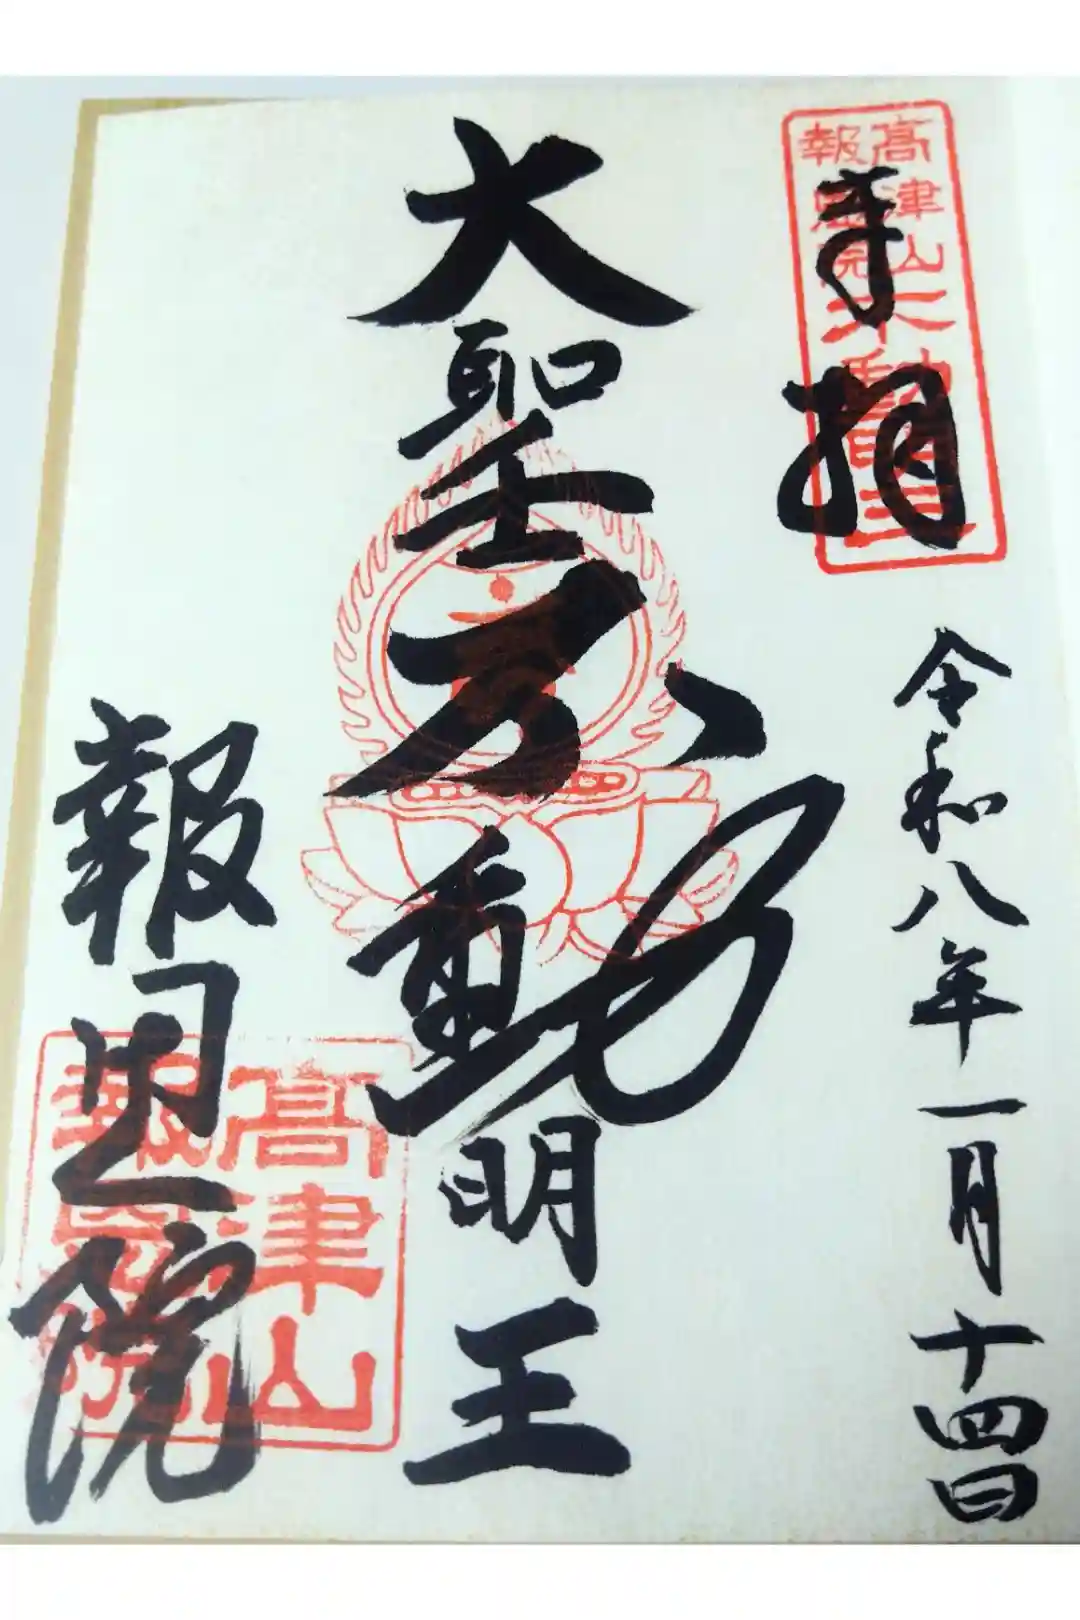 奉拝
令和八年一月十四日
高津山
報恩院
不動明王
大聖不動明王
報恩院
高津山
報恩院